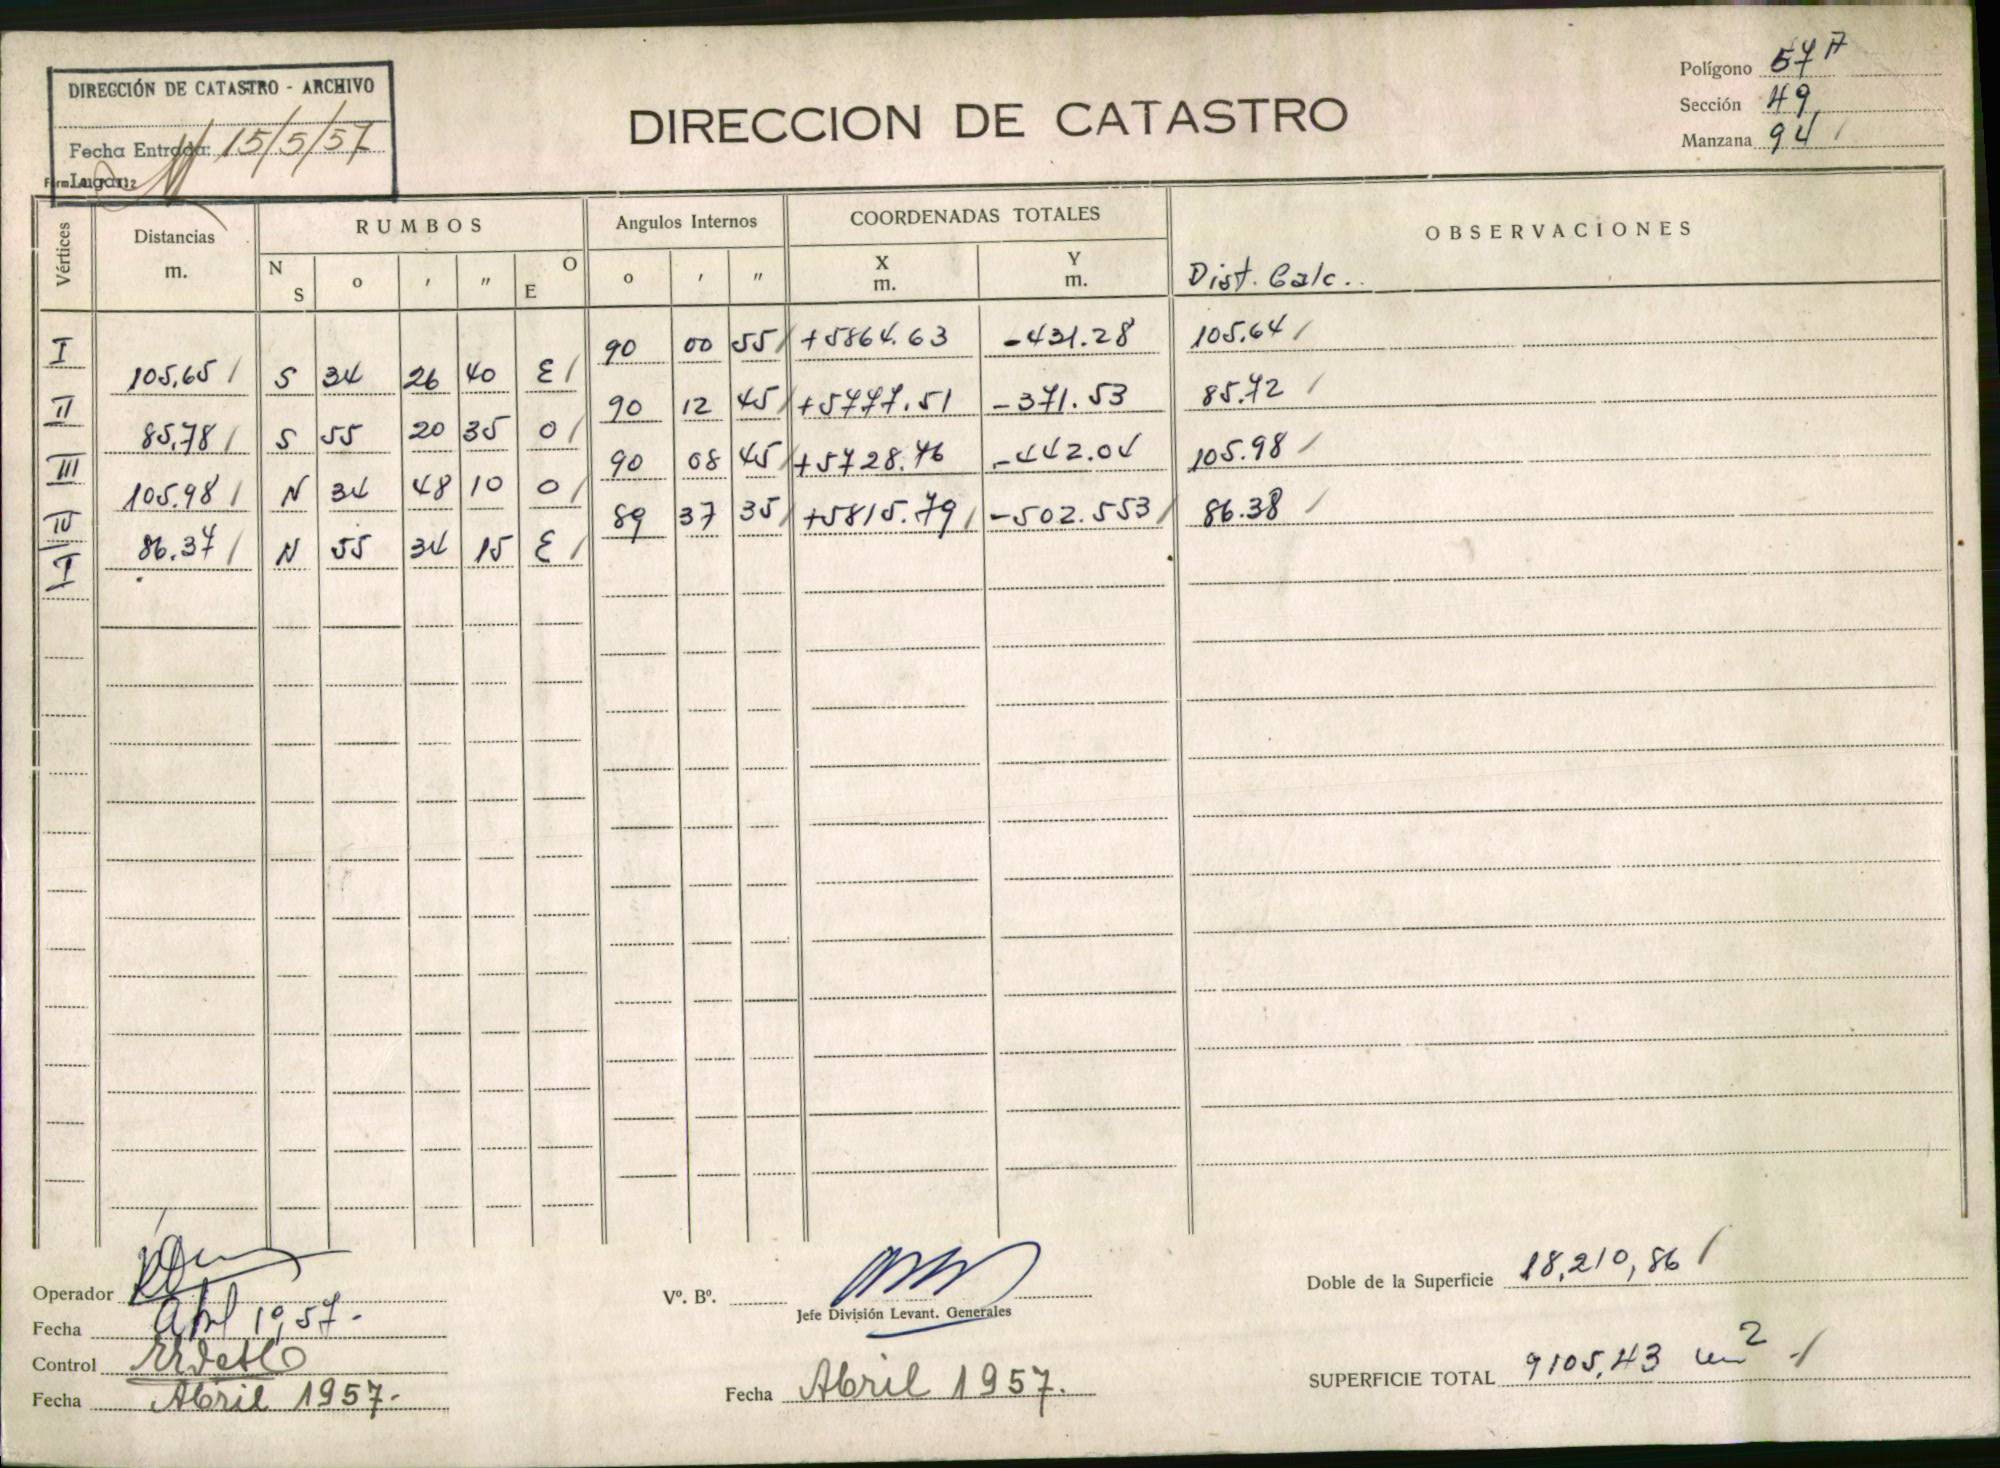 DIRECCIÓN DE CATASTRO - ARCHIVO
Fecha Entrada: 15/5/57
Lugar:
DIRECCION DE CATASTRO
Polígono 57 A
Sección 49
Manzana 94 /
Vértices Distancias m. RUMBOS Angulos Internos COORDENADAS TOTALES OBSERVACIONES
N S o ′ ″ O E o ′ ″ X m. Y m. Dist. Calc..
I 90 00 55/ +5864.63 -431.28 105.64 /
105,65 / S 34 26 40 E /
II 90 12 45/ +5777.51 -371.53 85.72 /
85,78 / S 55 20 35 O /
III 90 08 45/ +5728.76 -442.04 105.98 /
105.98 / N 34 48 10 O /
IV 89 37 35/ +5815.79 / -502.553 / 86.38 /
86.37 / N 55 34 15 E /
I
Operador
Fecha Abril 1957.-
Control
Fecha Abril 1957.-
Vº. Bº.
Jefe División Levant. Generales
Fecha Abril 1957.
Doble de la Superficie 18,210,86 /
SUPERFICIE TOTAL 9105,43 m² /